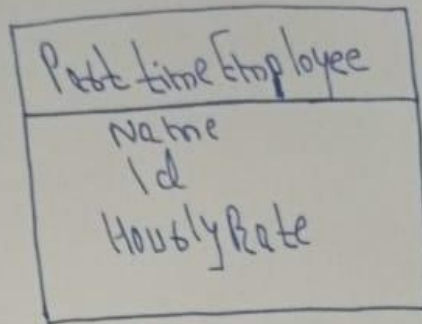 Part time Employee
Name
Id
Hourly Rate